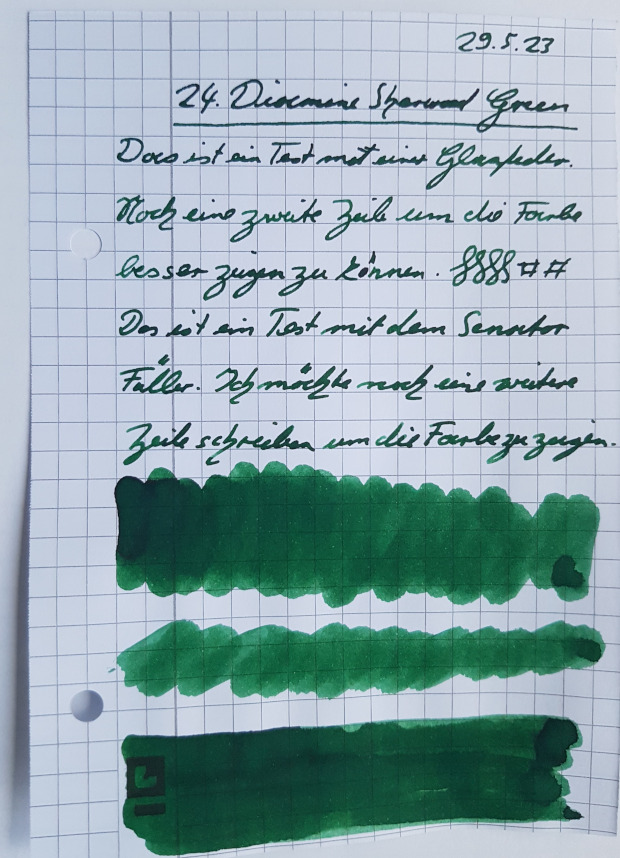 29.5.23
24. Diamine Sherwood Green
Das ist ein Test mit einer Glasfeder.
Noch eine zweite Zeile um die Farbe
besser zeigen zu können. §§§§ # #
Das ist ein Test mit dem Senator
Füller. Ich möchte noch eine weitere
Zeile schreiben um die Farbe zu zeigen.